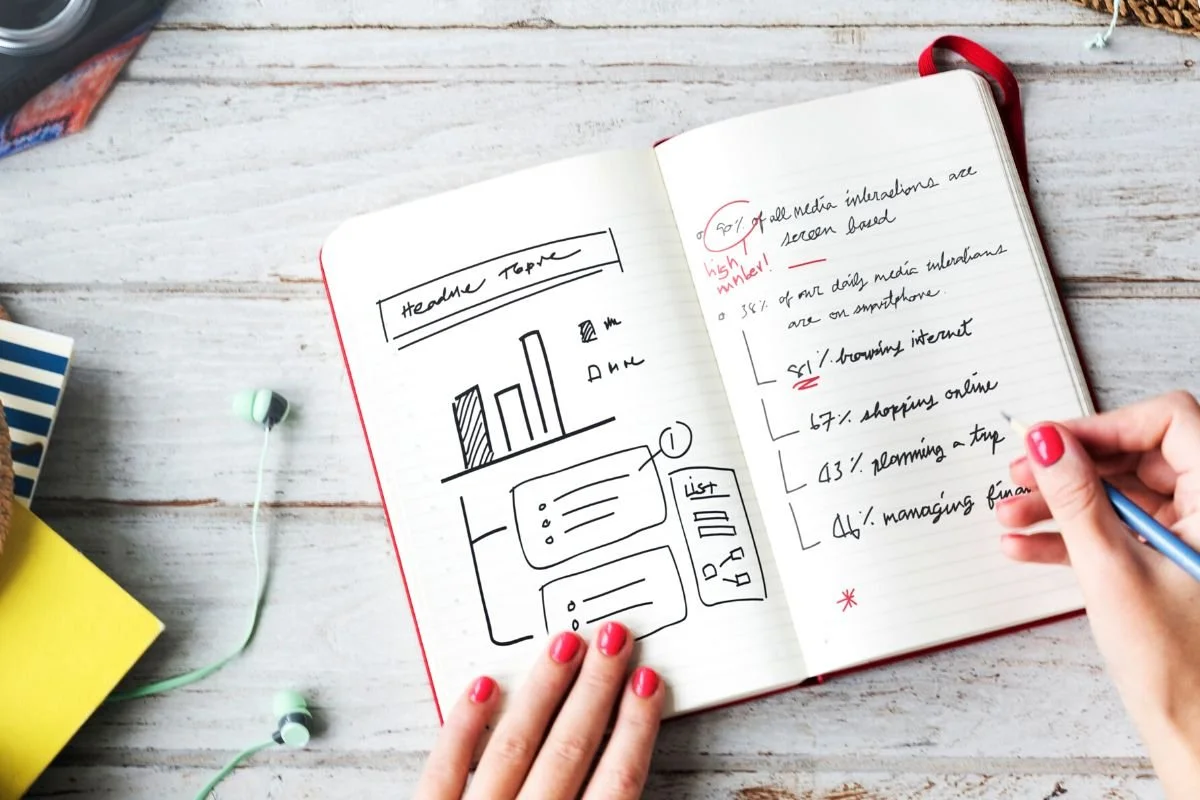 Headline Topic
①
List
90% of all media interactions are
screen based
high
number!
38% of our daily media interactions
are on smartphone.
81% browsing internet
67% shopping online
43% planning a trip
46% managing finan
*